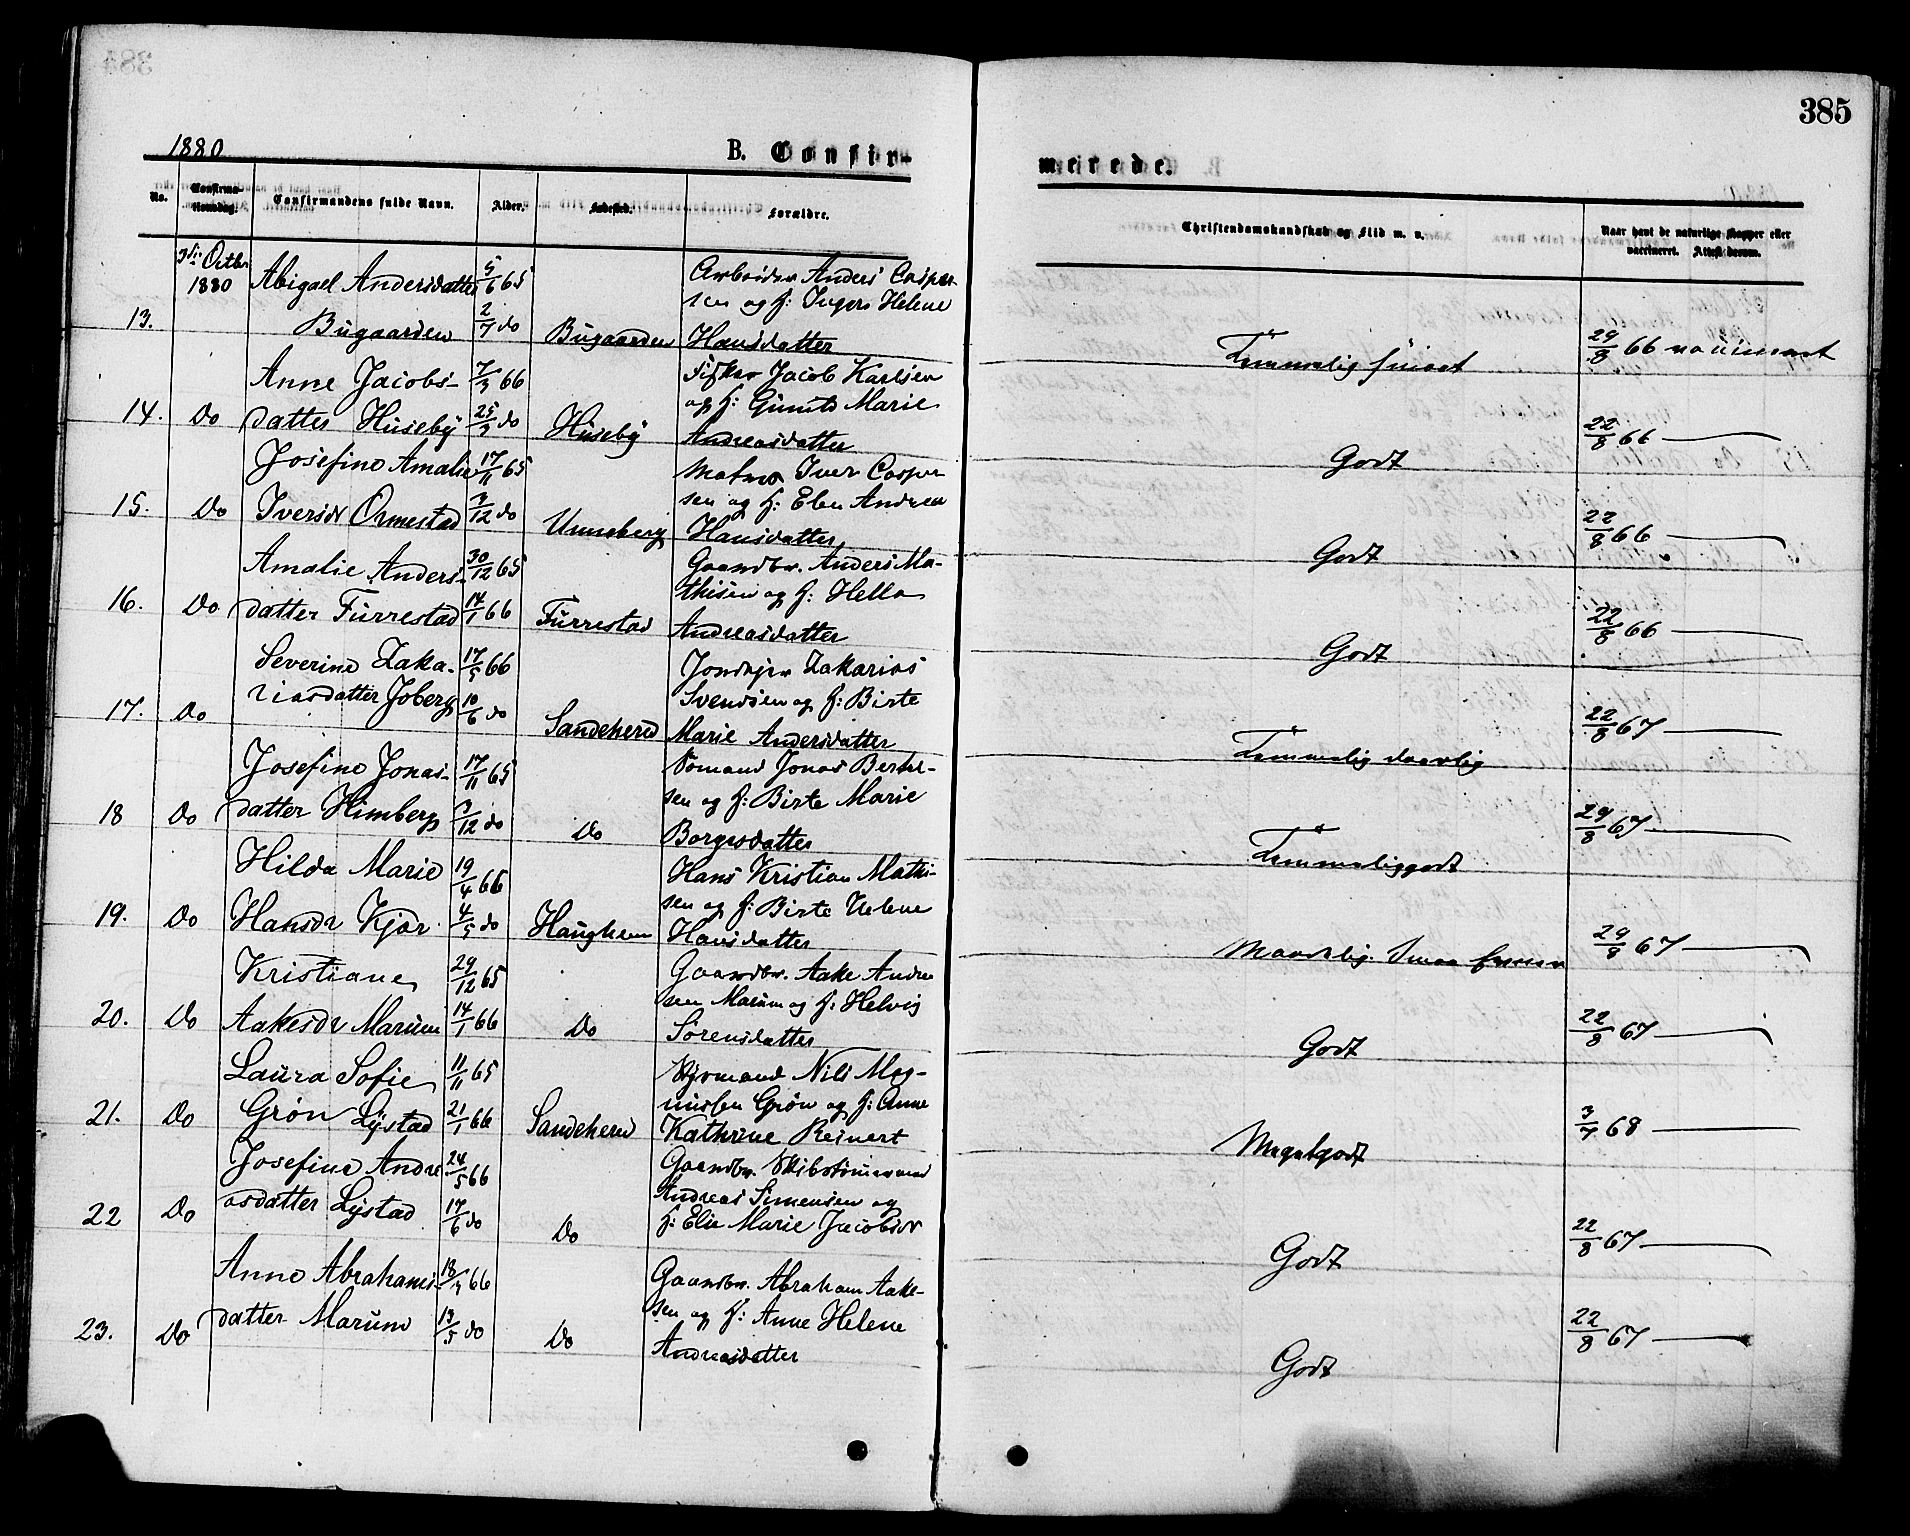 385
1880
B. Confirmerede.
No. Confirmationsdag. Confirmandens fulde Navn. Alder. Fødested. Forældre. Christendomskundskab og Flid m. v. Naar havt de naturlige Kopper eller vaccineret. Attest derom.
3die Octbr
1880 Abigael Andersdatter 5/6 65 Arbeider Anders Casper-
sen og H: Inger Helene
13. Bugaarden 2/7 do Bugaarden Hansdatter 29/8 66 vaccineret
Anne Jacobs- 7/3 66 Jacob Karlsen
og H: Marie
14. Do datter Huseby 25/3 do Huseby Andreasdatter Godt 22/8 66
Josefine Amalie 17/11 65 Matros Iver Casper-
sen og H: Elen Andrea
15. Do Iversdr Ormestad 3/12 do Unneberg Hansdatter Godt 22/8 66
Amalie Anders- 30/12 65 Gaardbr. Anders Ma-
thisen og H: Hella
16. Do datter Furrestad 14/1 66 Furrestad Andreasdatter Godt 22/8 66
Severine Zaka- 17/5 66 Zakarias
riasdatter Joberg 10/6 do Svendsen og H: Birte
17. Do Sandeherred Marie Andersdatter Temmelig daarlig 22/8 67
Josefine Jonas- 17/11 65 Sømand Jonas
sen og H: Birte Marie
18 Do datter Himberg 3/12 do Do Borgersdatter Temmelig godt 29/8 67
Hilda Marie 19/4 66 Hans Kristian Mathi-
sen og H: Birte Helene
19. Do Hansdr Kjær 4/5 do Haughem Hansdatter Maadelig. 29/8 67
Kristiane 29/12 65 Gaardbr. Aake Andre
sen Marum og H: Helvig
20. Do Aakesdr Marum 14/1 66 Do Sörensdatter Godt 22/8 67
Laura Sofie 11/11 65 Styrmand Nils Mag-
nussen Grøn og H: Anne
21. Do Grøn Lystad 21/1 66 Sandeherred Kathrine Reinert Megetgodt 3/7 68
Josefine Andre 24/5 66 Gaardbr. Skibstømmermand
Andreas Simensen og
22 Do asdatter Lystad 17/6 do Do H: Elie Marie Jacobsdr Godt 22/8 67
Anne Abrahams- 18/3 66 Gaardbr. Abraham Aake-
sen og H: Anne Helene
23. Do datter Marum 13/5 do Do Andreasdatter Godt 22/8 67